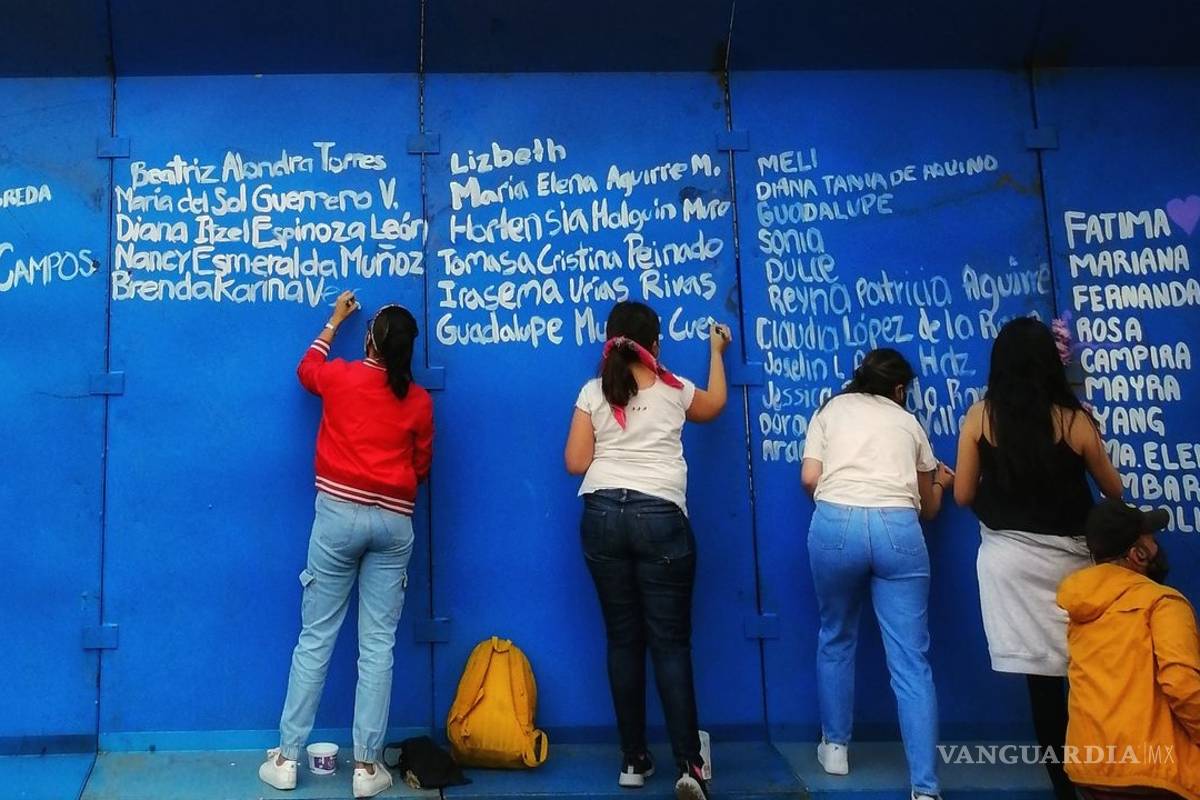 REDA
CAMPOS
Beatriz Alondra Torres
María del Sol Guerrero V.
Diana Itzel Espinoza León
Nancy Esmeralda Muñoz
Brenda Karina
Lizbeth
María Elena Aguirre M.
Hortensia Holguin
Tomasa Cristina Peinado
Irasema Urias Rivas
Guadalupe
MELI
DIANA TANIA DE AQUINO
GUADALUPE
SONIA
DULCE
Reyna Patricia Aguirre
Claudia López de la
Joselin Hdz
FATIMA
MARIANA
FERNANDA
ROSA
CAMPIRA
MAYRA
YANG
VANGUARDIA MX